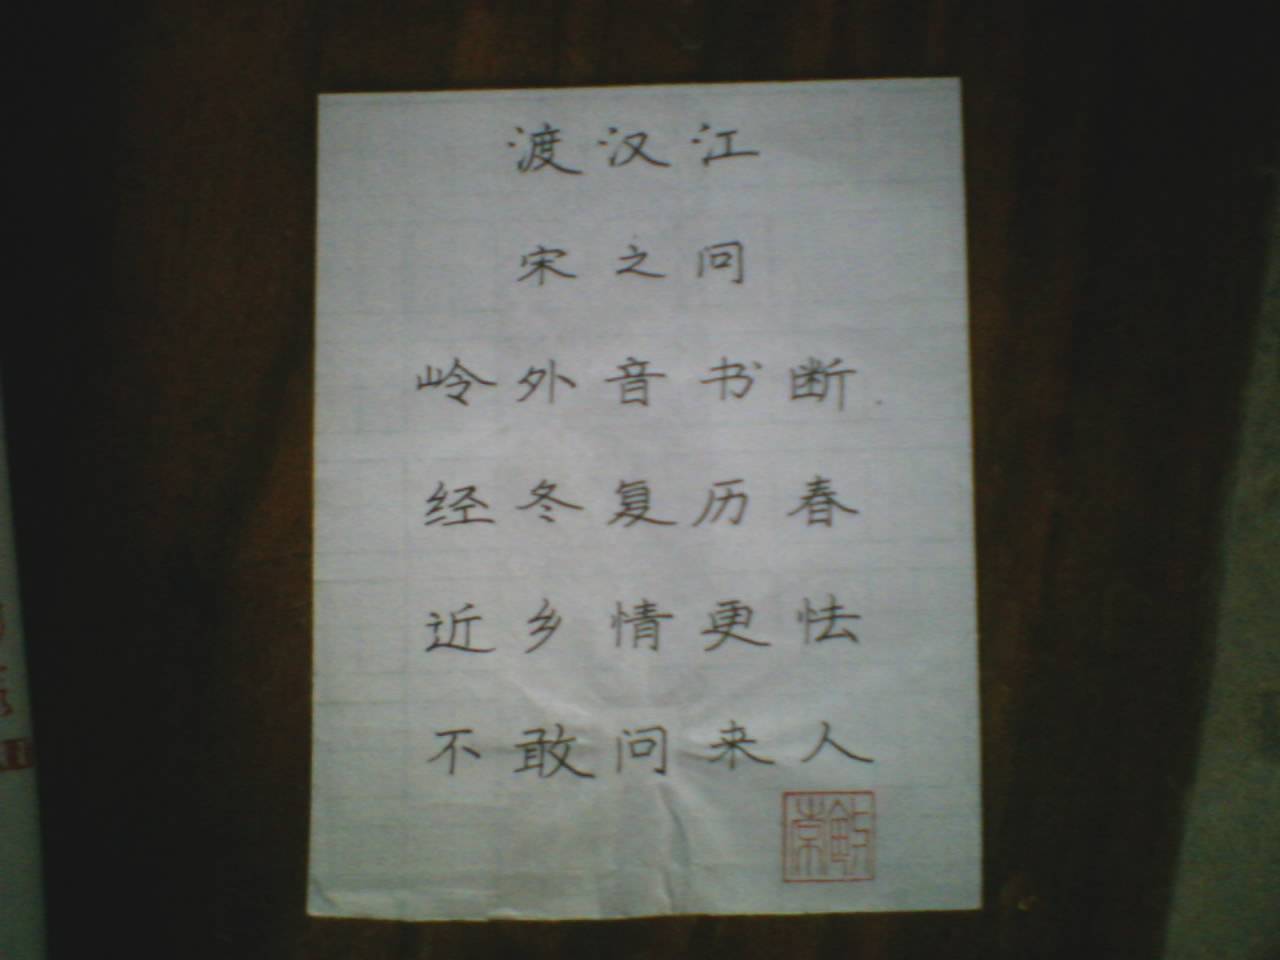 渡汉江
宋之问
岭外音书断
经冬复历春
近乡情更怯
不敢问来人